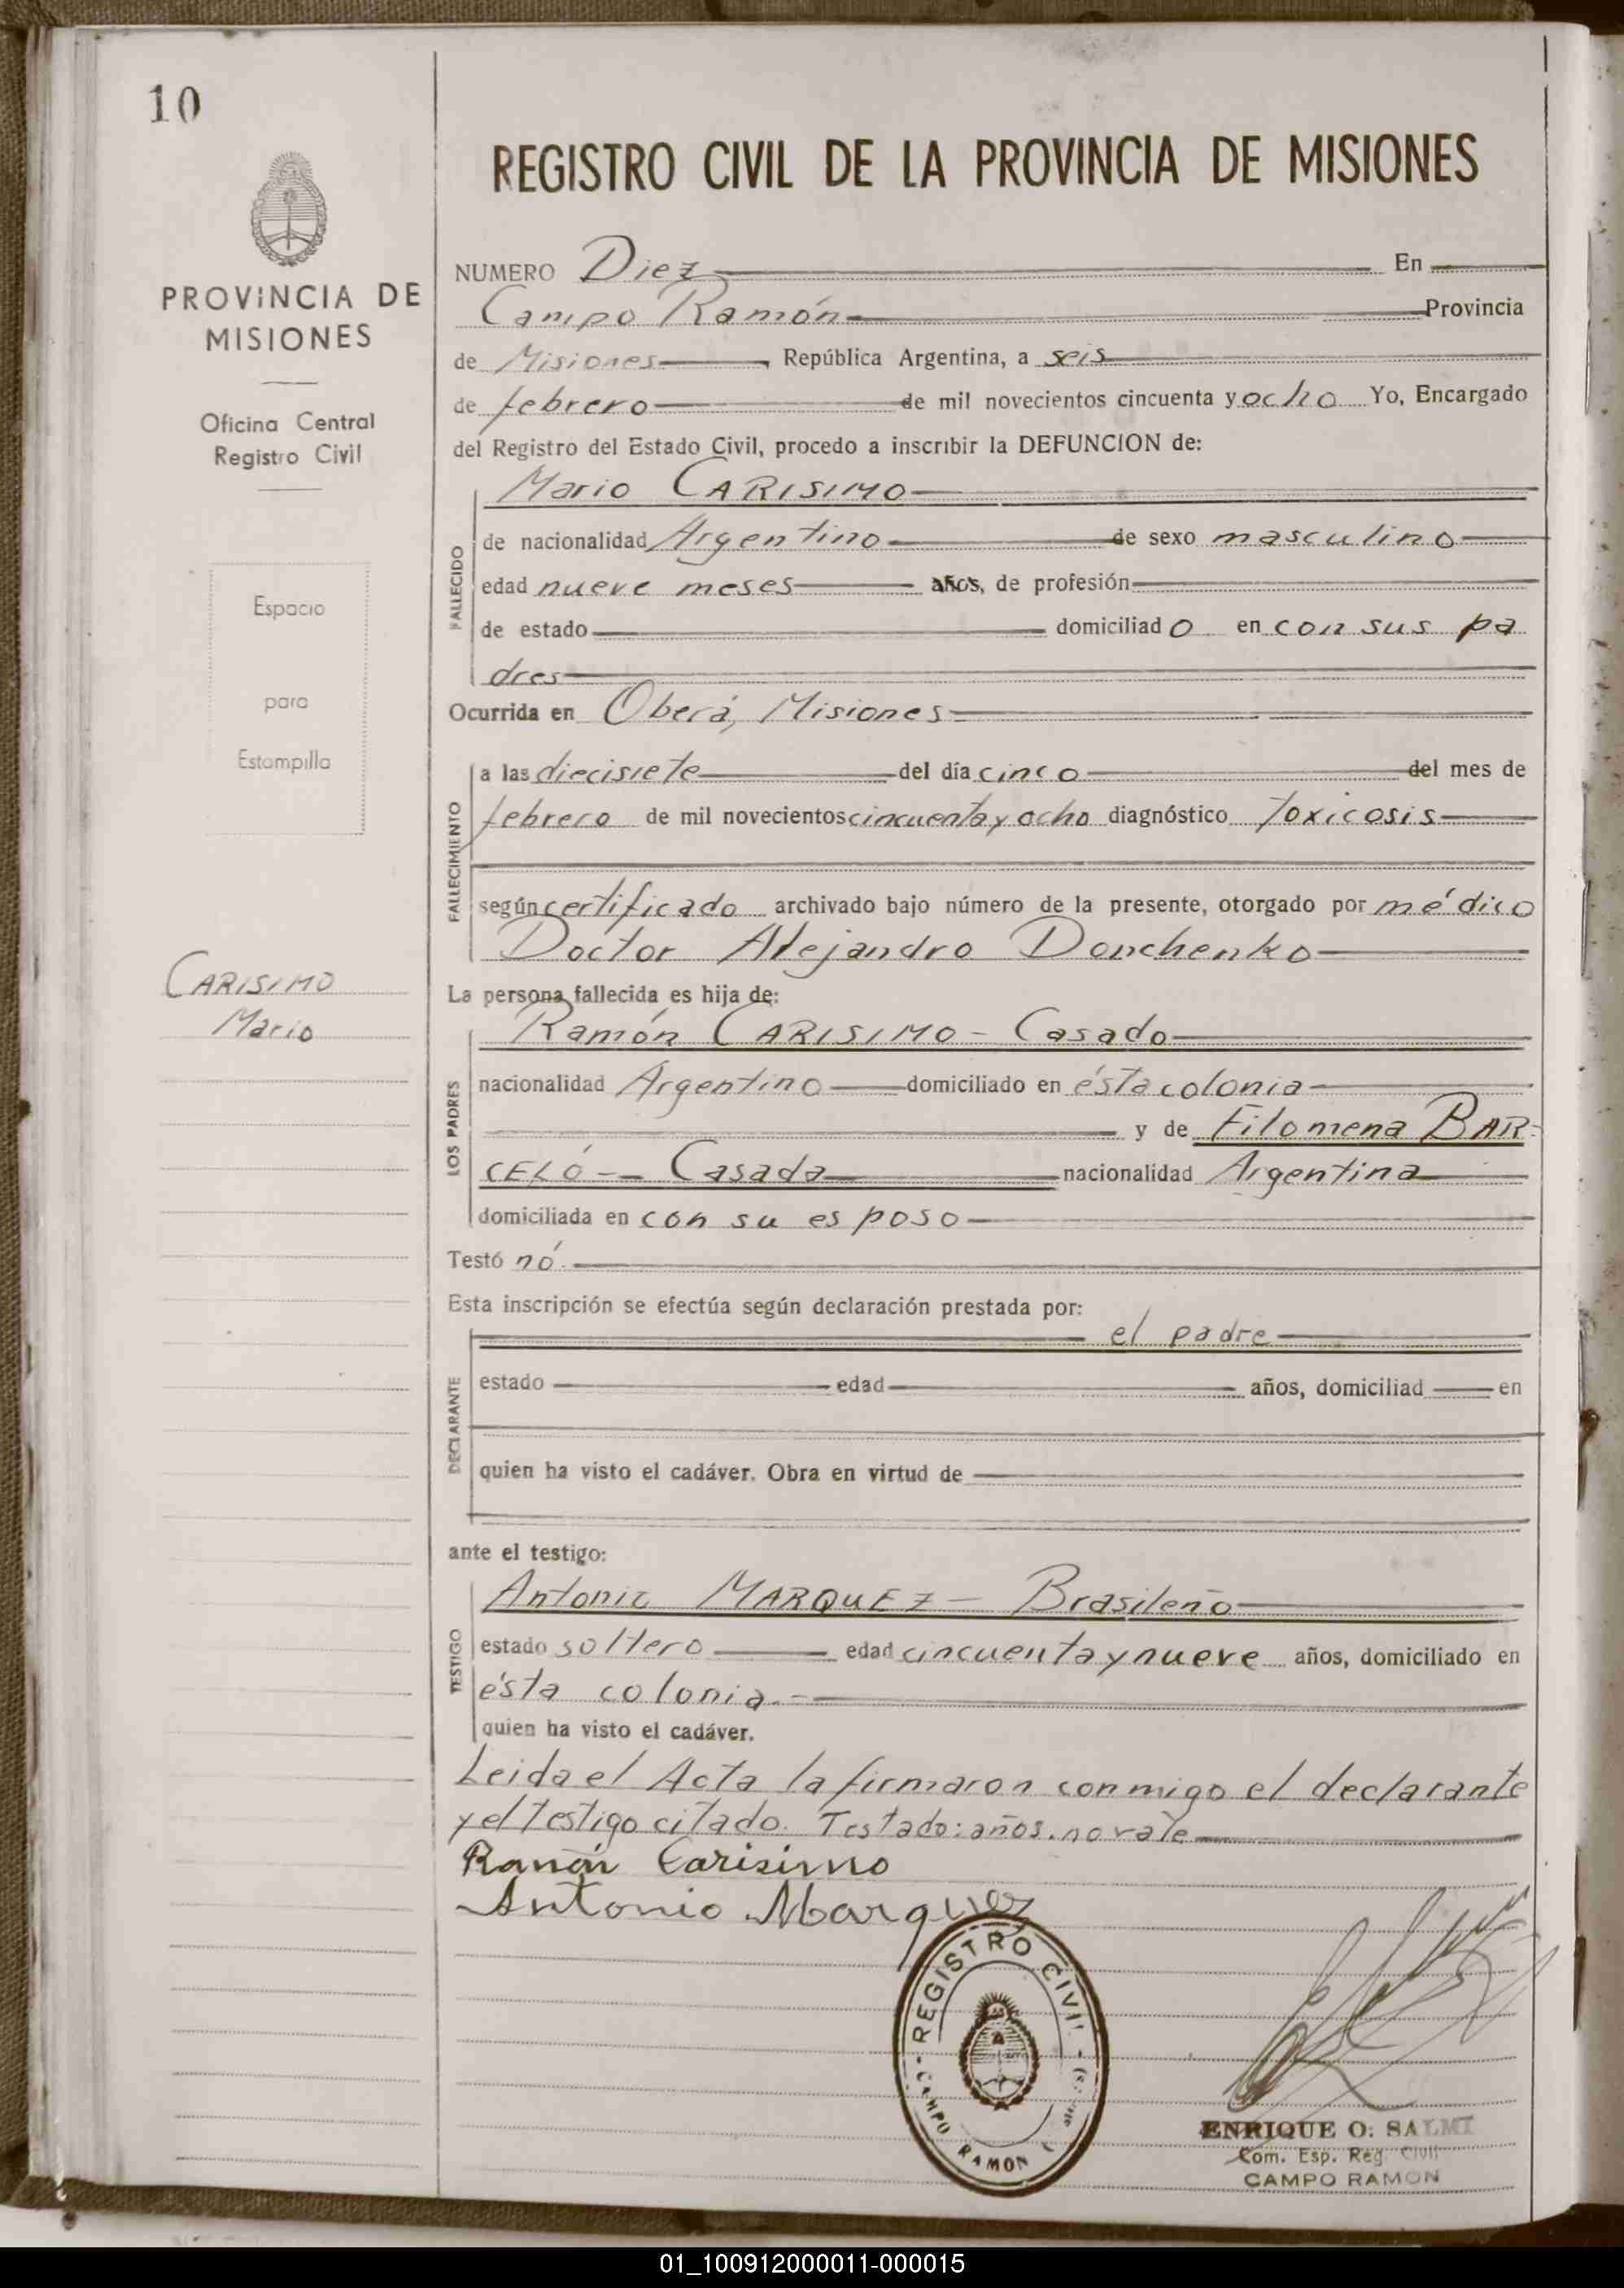 10
PROVINCIA DE
MISIONES
Oficina Central
Registro Civil
Espacio
para
Estampilla
CARISIMO
Mario
REGISTRO CIVIL DE LA PROVINCIA DE MISIONES
NUMERO Diez En
Campo Ramón Provincia
de Misiones, República Argentina, a seis
de febrero de mil novecientos cincuenta y ocho Yo, Encargado
del Registro del Estado Civil, procedo a inscribir la DEFUNCION de:
FALLECIDO
Mario CARISIMO
de nacionalidad Argentino de sexo masculino
edad nueve meses años, de profesión
de estado domiciliado en con sus pa
dres
Ocurrida en Oberá, Misiones
FALLECIMIENTO
a las diecisiete del día cinco del mes de
febrero de mil novecientos cincuenta y ocho diagnóstico Toxicosis
según certificado archivado bajo número de la presente, otorgado por médico
Doctor Alejandro Donchenko
La persona fallecida es hija de:
LOS PADRES
Ramón CARISIMO - Casado
nacionalidad Argentino domiciliado en ésta colonia
y de Filomena BAR-
CELÓ - Casada nacionalidad Argentina
domiciliada en con su esposo
Testó nó.
Esta inscripción se efectúa según declaración prestada por:
DECLARANTE
el padre
estado edad años, domiciliad en
quien ha visto el cadáver. Obra en virtud de
ante el testigo:
TESTIGO
Antonio MARQUEZ - Brasileño
estado soltero edad cincuenta y nueve años, domiciliado en
ésta colonia.-
quien ha visto el cadáver.
Leida el Acta la firmaron conmigo el declarante
y el testigo citado. Testado: años. no vale
Ramón Carisimo
Antonio Marquez
REGISTRO CIVIL
CAMPO RAMON
ENRIQUE O. SALMI
Com. Esp. Reg. Civil
CAMPO RAMON
01_100912000011-000015